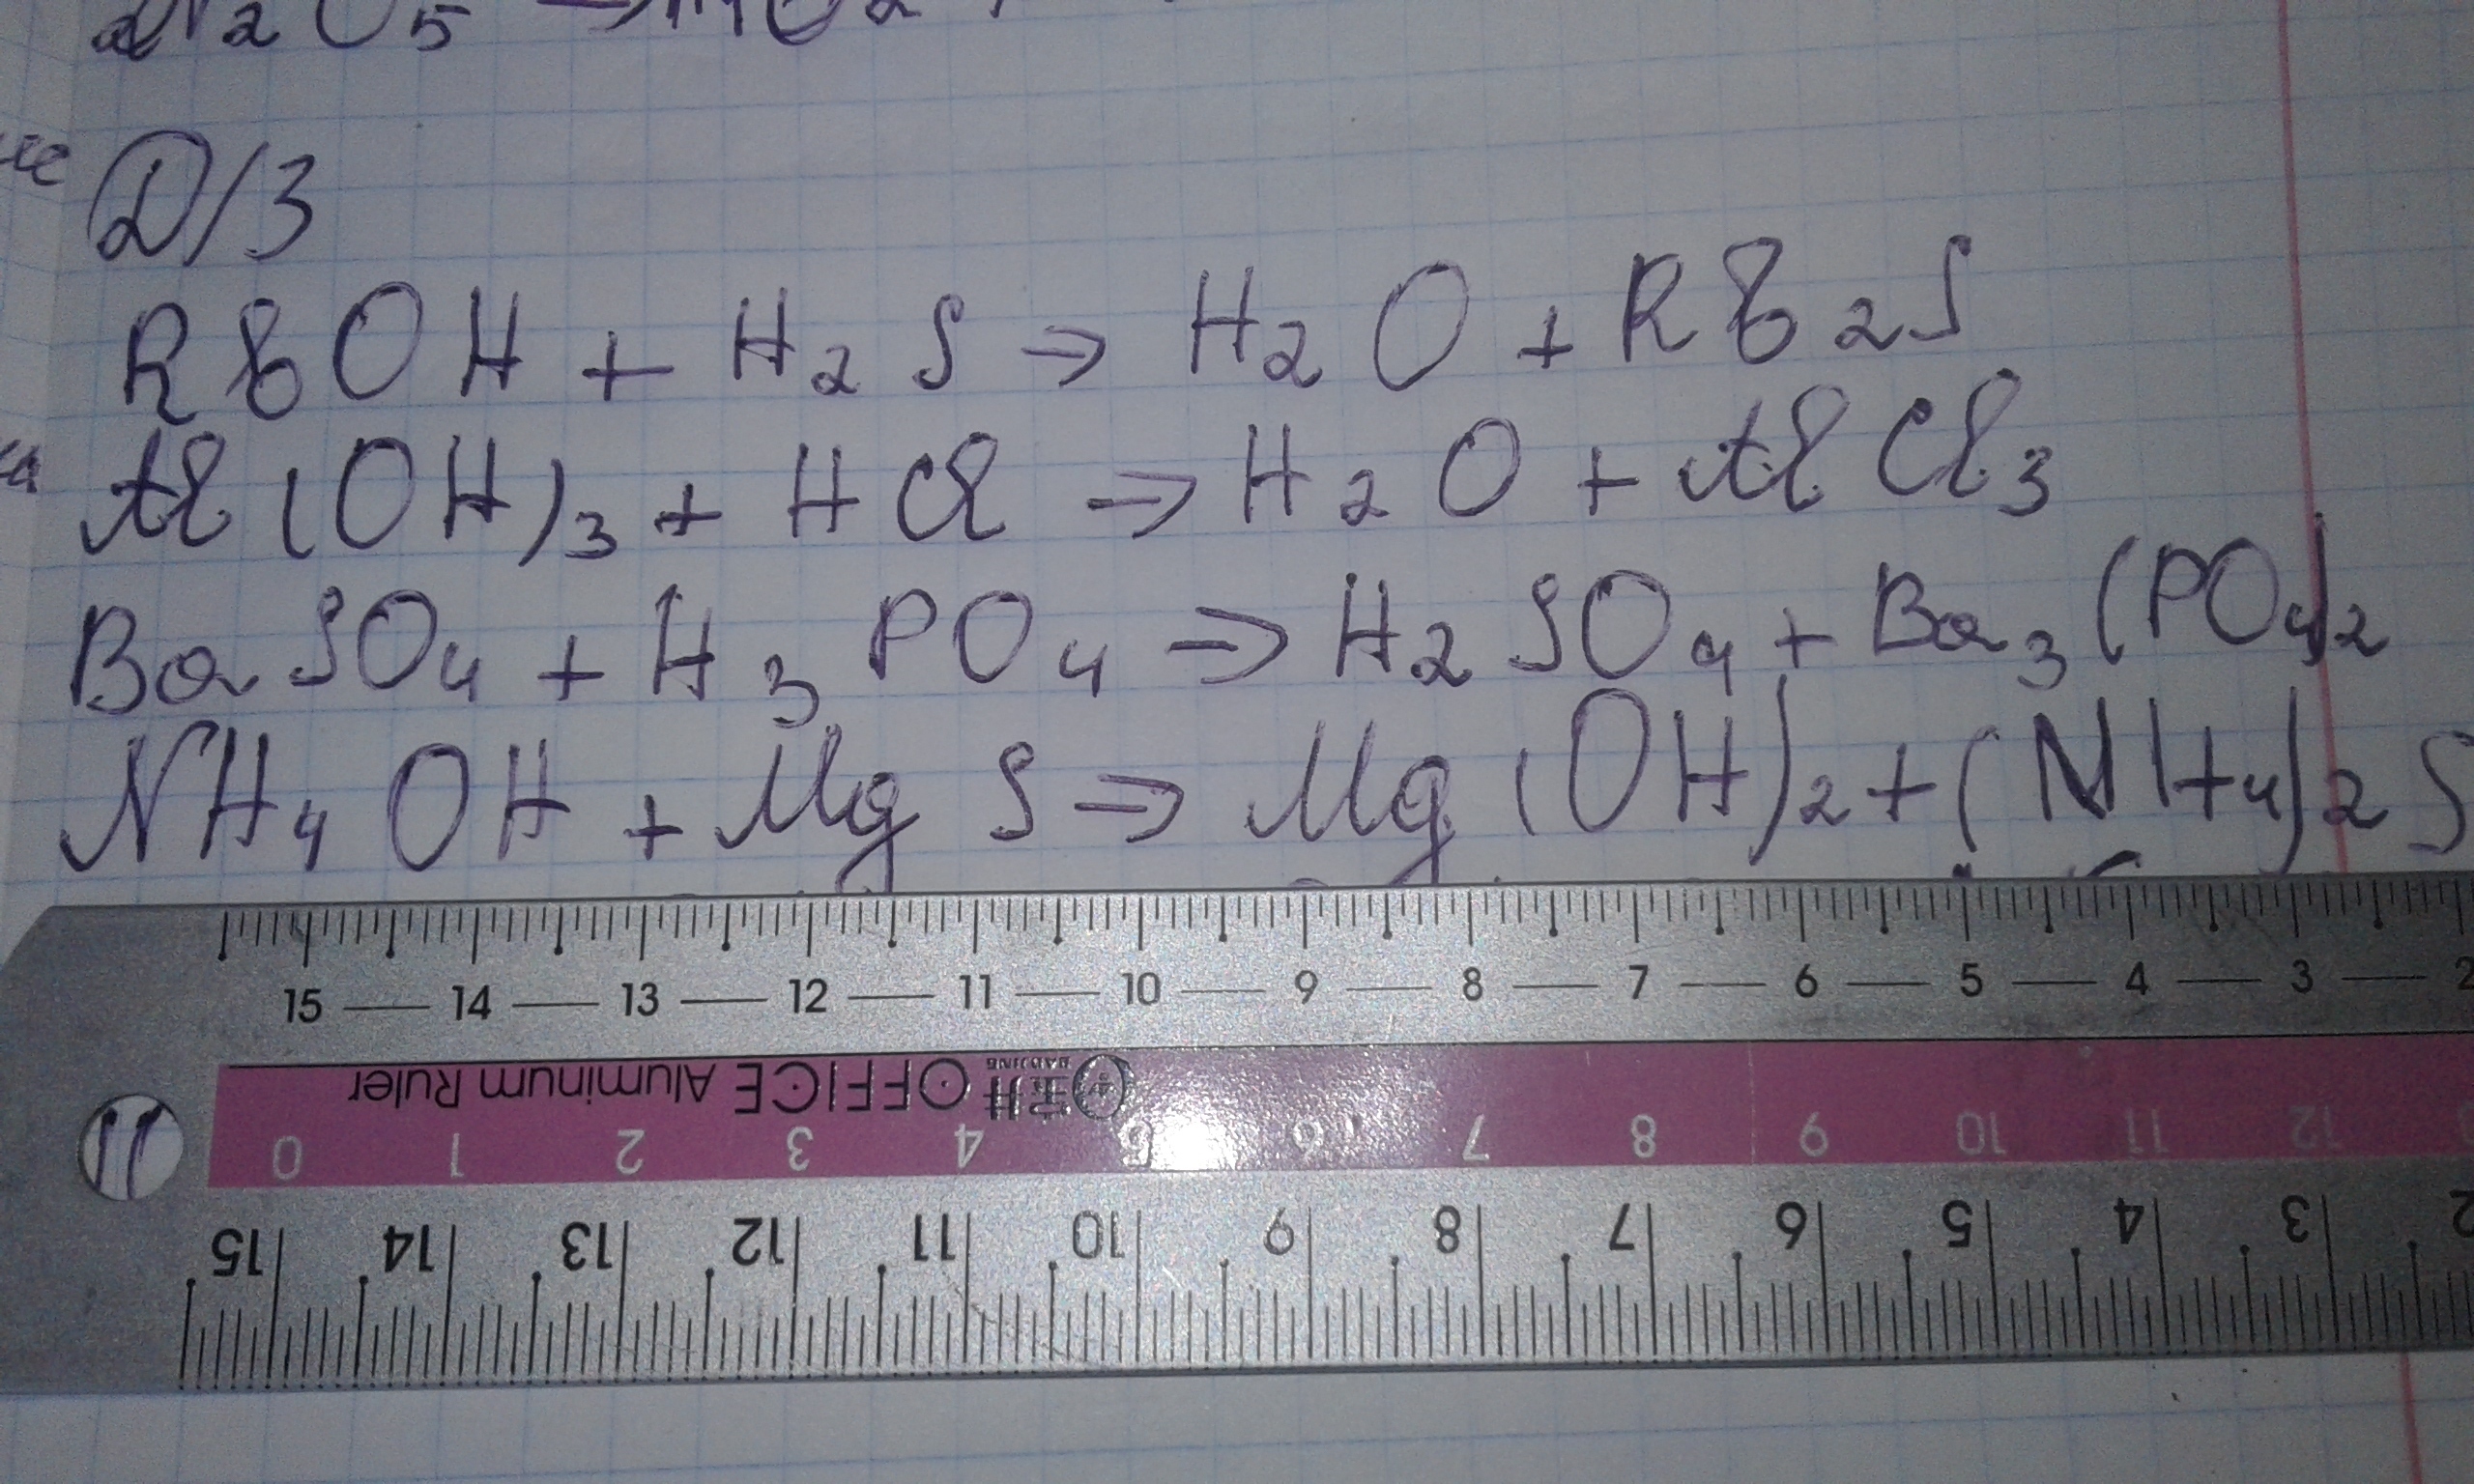 Д/З
RbOH + H2S → H2O + Rb2S
Al(OH)3 + HCl → H2O + AlCl3
BaSO4 + H3PO4 → H2SO4 + Ba3(PO4)2
NH4OH + MgS → Mg(OH)2 + (NH4)2S
15 14 13 12 11 10 9 8 7 6 5 4 3 2
OFFICE Aluminum Ruler
0 1 2 3 4 5 6 7 8 9 10 11 12
15 14 13 12 11 10 9 8 7 6 5 4 3 2